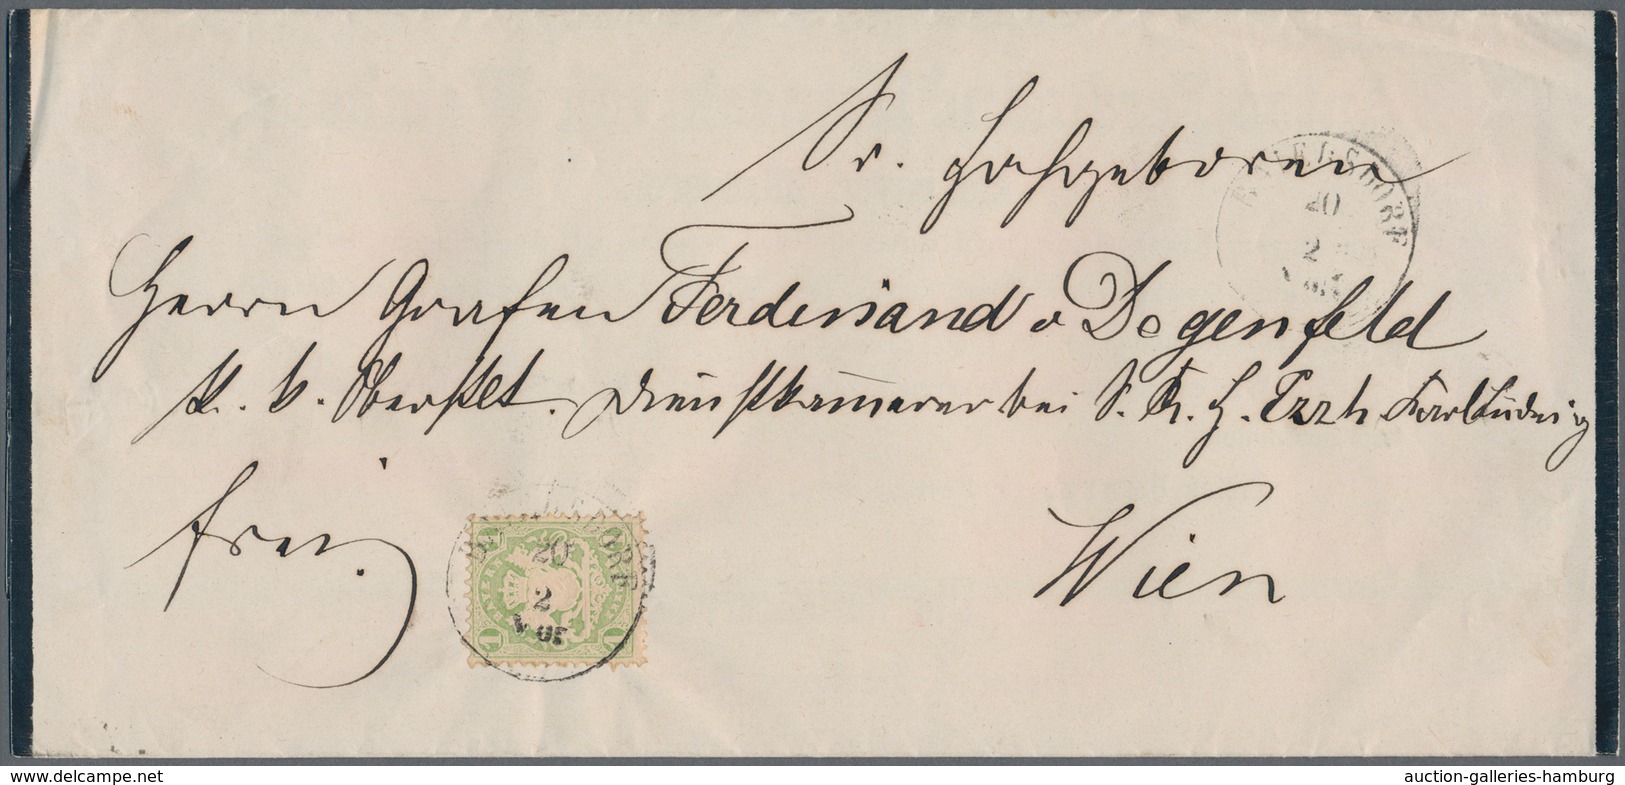 Sr. Hochgeboren
Herrn Grafen Ferdinand v Degenfeld
k. k. Oberstlt. Dienstkämmerer bei S. K. H. Erzh. Karl Ludwig
frei.
Wien
20
2
20
2
BAYERN
1 1
www.delcampe.net
auction-galleries-hamburg